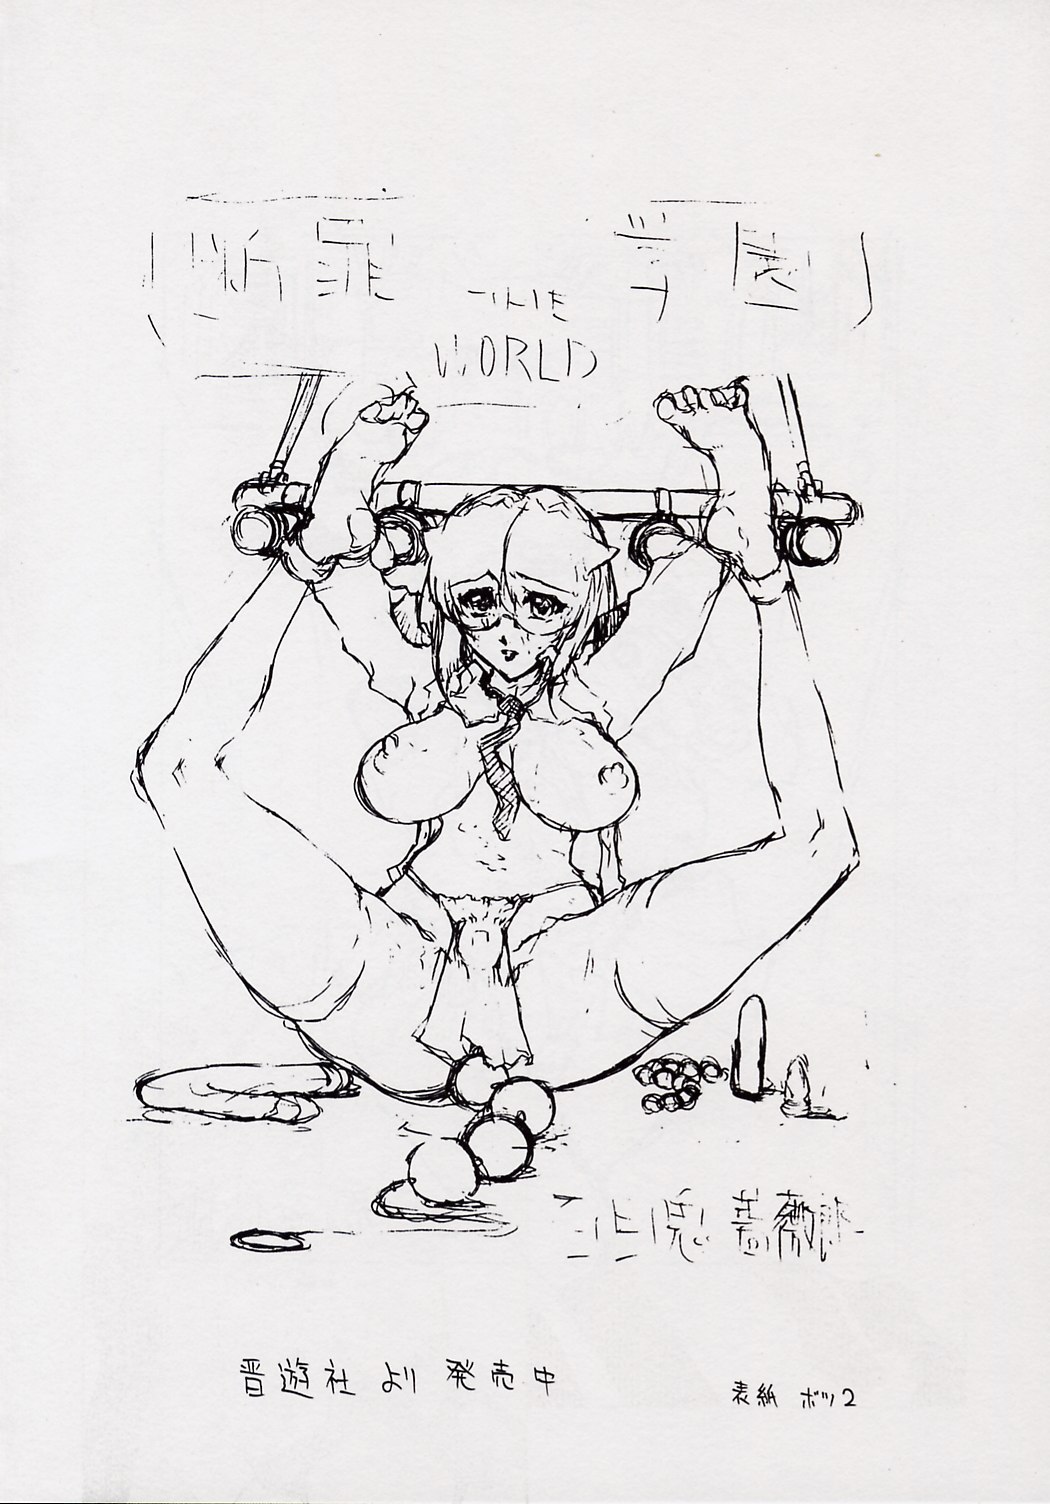 断罪 学園
THE
WORLD
晋遊社 より 発売中
表紙 ボツ2